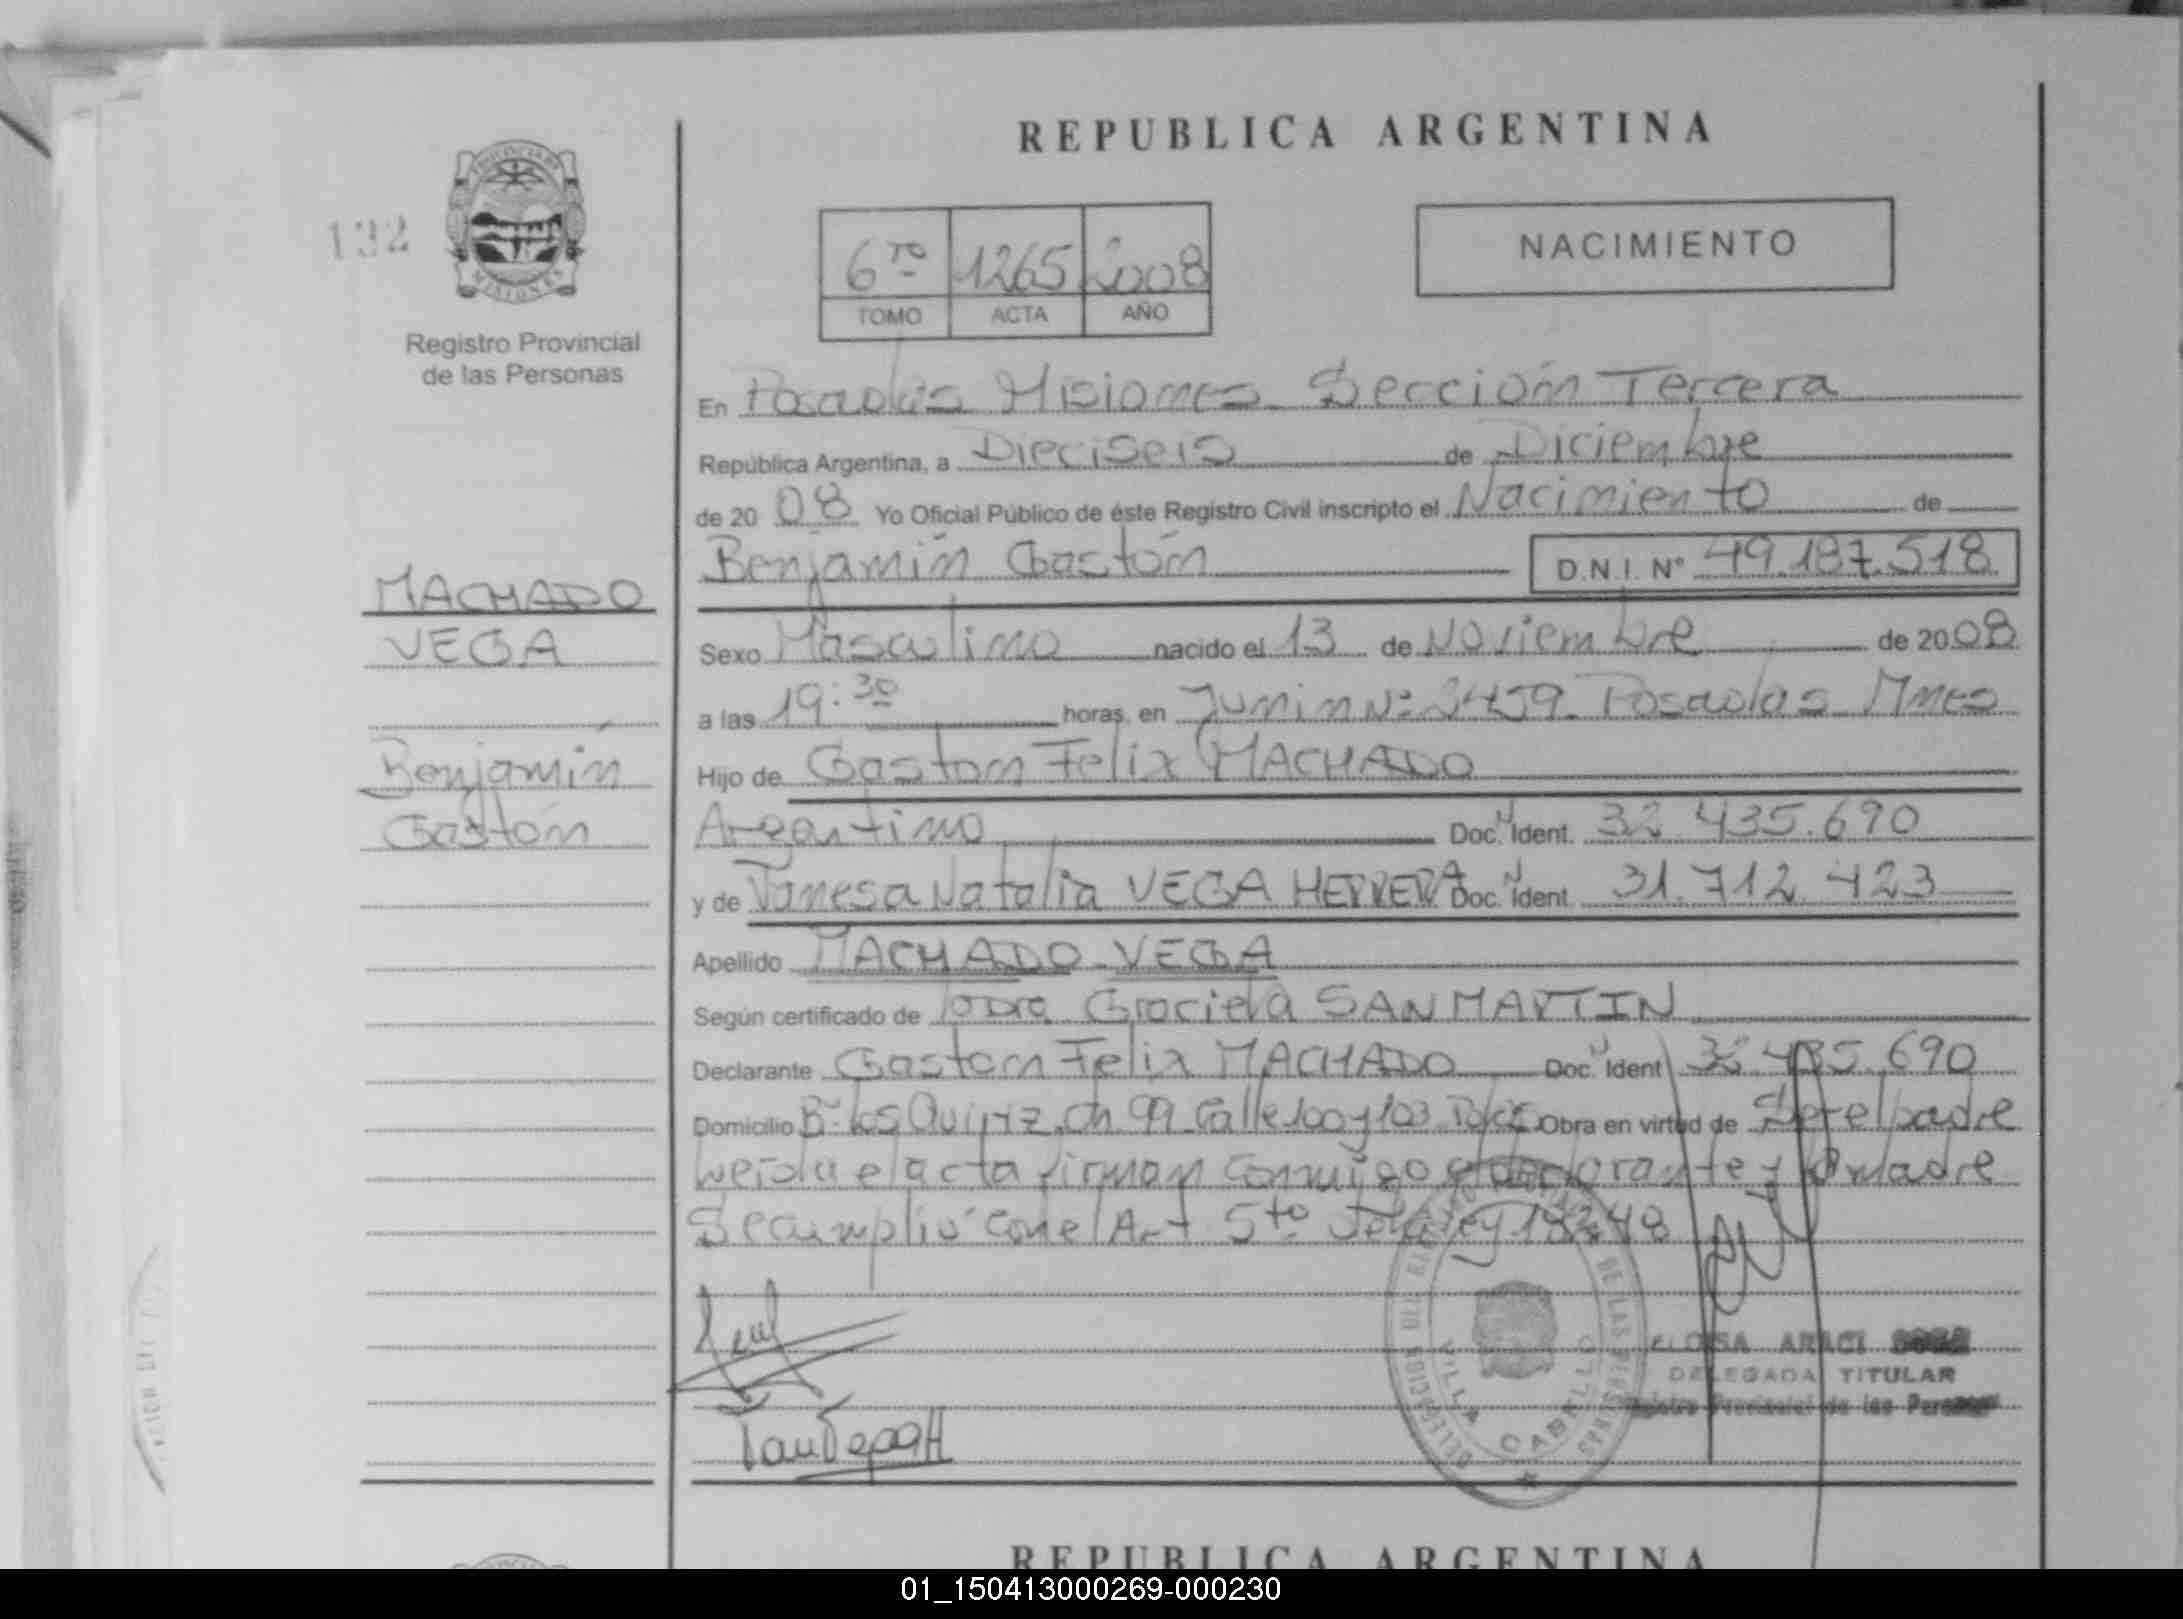 REPUBLICA ARGENTINA
132
NACIMIENTO
6to 1265 2008
TOMO ACTA AÑO
Registro Provincial
de las Personas
En Posadas Misiones Sección Tercera
República Argentina, a Dieciseis de Diciembre
de 2008 Yo Oficial Público de éste Registro Civil inscripto el Nacimiento de
Benjamín Gastón D.N.I. N° 49.187.518
MACHADO
VEGA
Benjamín
Gastón
Sexo Masculino nacido el 13 de Noviembre de 2008
a las 19:30 horas en Junin Nº 2459 Posadas Mnes
Hijo de Gaston Felix MACHADO
Argentino Doc. Ident. 32.435.690
y de Vanesa Natalia VEGA HERRERA Doc. Ident. 31.712.423
Apellido MACHADO VEGA
Según certificado de Graciela SAN MARTIN
Declarante Gaston Felix MACHADO Doc. Ident 32.435.690
Domicilio Bº Los Ch. 99 Calle 100 y 103 Obra en virtud de Ser el padre
Leida el acta firman conmigo el declarante y la madre
Se cumplió con el Art 5to ley 18248
DELEGACION DE LAS PERSONAS
VILLA CABELLO
ELOISA ARACI
DELEGADA TITULAR
Registro Provincial de las Personas
REPUBLICA ARGENTINA
01_150413000269-000230